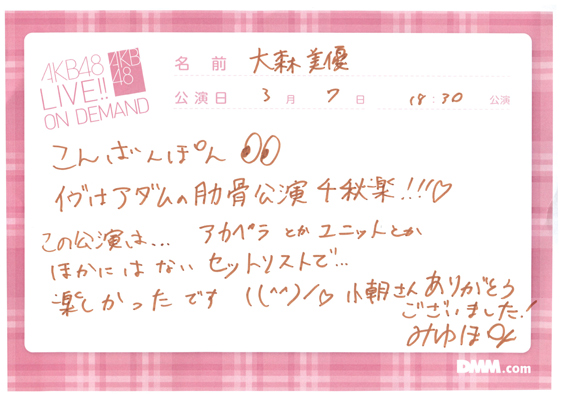 AKB48
LIVE!!
ON DEMAND
AKB
48
名前 大森美優
公演日 3月 7日 18:30 公演
こんばんぽん
イヴはアダムの肋骨公演千秋楽!!!♡
この公演は... アカペラとかユニットとか
ほかにはないセットリストで...
楽しかったです ((^^)/♡ 小朝さんありがとう
ございました!
みゆぽん
DMM.com